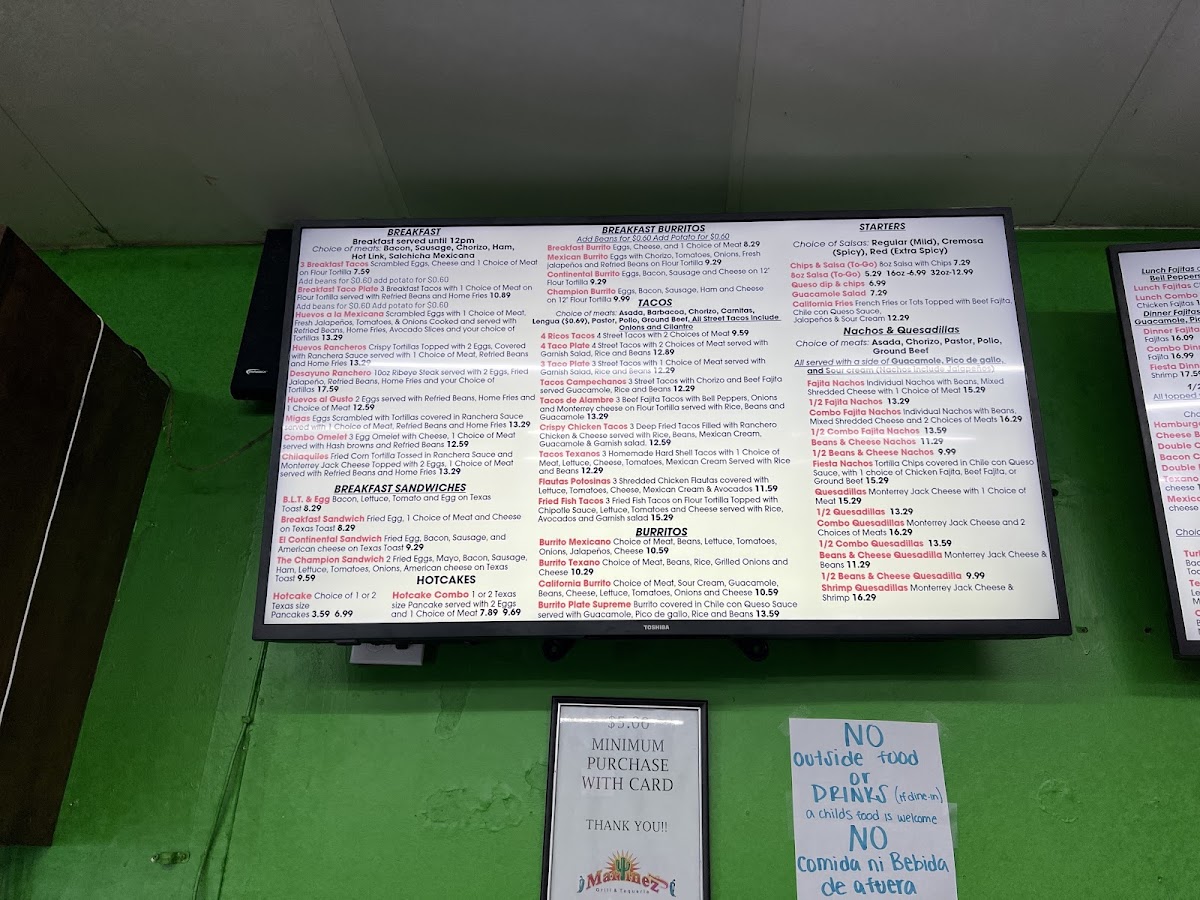 BREAKFAST
Breakfast served until 12pm
Choice of meats: Bacon, Sausage, Chorizo, Ham,
Hot Link, Salchicha Mexicana
3 Breakfast Tacos Scrambled Eggs, Cheese and 1 Choice of Meat
on Flour Tortilla 7.59
Add beans for $0.60 add potato for $0.60
Breakfast Taco Plate 3 Breakfast Tacos with 1 Choice of Meat on
Flour Tortilla served with Refried Beans and Home Fries 10.89
Add beans for $0.60 Add potato for $0.60
Huevos a la Mexicana Scrambled Eggs with 1 Choice of Meat,
Fresh Jalapeños, Tomatoes, & Onions Cooked and served with
Refried Beans, Home Fries, Avocado Slices and your choice of
Tortillas 13.29
Huevos Rancheros Crispy Tortillas Topped with 2 Eggs, Covered
with Ranchera Sauce served with 1 Choice of Meat, Refried Beans
and Home Fries 13.29
Desayuno Ranchero 10oz Ribeye Steak served with 2 Eggs, Fried
Jalapeño, Refried Beans, Home Fries and your Choice of
Tortillas 17.59
Huevos al Gusto 2 Eggs served with Refried Beans, Home Fries and
1 Choice of Meat 12.59
Migas Eggs Scrambled with Tortillas covered in Ranchera Sauce
served with 1 Choice of Meat, Refried Beans and Home Fries 13.29
Combo Omelet 3 Egg Omelet with Cheese, 1 Choice of Meat
served with Hash browns and Refried Beans 12.59
Chilaquiles Fried Corn Tortilla Tossed in Ranchera Sauce and
Monterrey Jack Cheese Topped with 2 Eggs, 1 Choice of Meat
served with Refried Beans and Home Fries 13.29
BREAKFAST SANDWICHES
B.L.T. & Egg Bacon, Lettuce, Tomato and Egg on Texas
Toast 8.29
Breakfast Sandwich Fried Egg, 1 Choice of Meat and Cheese
on Texas Toast 8.29
El Continental Sandwich Fried Egg, Bacon, Sausage, and
American cheese on Texas Toast 9.29
The Champion Sandwich 2 Fried Eggs, Mayo, Bacon, Sausage,
Ham, Lettuce, Tomatoes, Onions, American cheese on Texas
Toast 9.59
HOTCAKES
Hotcake Choice of 1 or 2
Texas size
Pancakes 3.59 6.99
Hotcake Combo 1 or 2 Texas
size Pancake served with 2 Eggs
and 1 Choice of Meat 7.89 9.69
BREAKFAST BURRITOS
Add Beans for $0.60 Add Potato for $0.60
Breakfast Burrito Eggs, Cheese, and 1 Choice of Meat 8.29
Mexican Burrito Eggs with Chorizo, Tomatoes, Onions, Fresh
jalapeños and Refried Beans on Flour Tortilla 9.29
Continental Burrito Eggs, Bacon, Sausage and Cheese on 12'
Flour Tortilla 9.29
Champion Burrito Eggs, Bacon, Sausage, Ham and Cheese
on 12' Flour Tortilla 9.99
TACOS
Choice of meats: Asada, Barbacoa, Chorizo, Carnitas,
Lengua ($0.69), Pastor, Pollo, Ground Beef, All Street Tacos include
Onions and Cilantro
4 Ricos Tacos 4 Street Tacos with 2 Choices of Meat 9.59
4 Taco Plate 4 Street Tacos with 2 Choices of Meat served with
Garnish Salad, Rice and Beans 12.89
3 Taco Plate 3 Street Tacos with 1 Choice of Meat served with
Garnish Salad, Rice and Beans 12.29
Tacos Campechanos 3 Street Tacos with Chorizo and Beef Fajita
served Guacamole, Rice and Beans 12.29
Tacos de Alambre 3 Beef Fajita Tacos with Bell Peppers, Onions
and Monterrey cheese on Flour Tortilla served with Rice, Beans and
Guacamole 13.29
Crispy Chicken Tacos 3 Deep Fried Tacos Filled with Ranchero
Chicken & Cheese served with Rice, Beans, Mexican Cream,
Guacamole & Garnish salad, 12.59
Tacos Texanos 3 Homemade Hard Shell Tacos with 1 Choice of
Meat, Lettuce, Cheese, Tomatoes, Mexican Cream Served with Rice
and Beans 12.29
Flautas Potosinas 3 Shredded Chicken Flautas covered with
Lettuce, Tomatoes, Cheese, Mexican Cream & Avocados 11.59
Fried Fish Tacos 3 Fried Fish Tacos on Flour Tortilla Topped with
Chipotle Sauce, Lettuce, Tomatoes and Cheese served with Rice,
Avocados and Garnish salad 15.29
BURRITOS
Burrito Mexicano Choice of Meat, Beans, Lettuce, Tomatoes,
Onions, Jalapeños, Cheese 10.59
Burrito Texano Choice of Meat, Beans, Rice, Grilled Onions and
Cheese 10.29
California Burrito Choice of Meat, Sour Cream, Guacamole,
Beans, Cheese, Lettuce, Tomatoes, Onions and Cheese 10.59
Burrito Plate Supreme Burrito covered in Chile con Queso Sauce
served with Guacamole, Pico de gallo, Rice and Beans 13.59
STARTERS
Choice of Salsas: Regular (Mild), Cremosa
(Spicy), Red (Extra Spicy)
Chips & Salsa (To-Go) 8oz Salsa with Chips 7.29
8oz Salsa (To-Go) 5.29 16oz -6.99 32oz-12.99
Queso dip & chips 6.99
Guacamole Salad 7.29
California Fries French Fries or Tots Topped with Beef Fajita,
Chile con Queso Sauce,
Jalapeños & Sour Cream 12.29
Nachos & Quesadillas
Choice of meats: Asada, Chorizo, Pastor, Pollo,
Ground Beef
All served with a side of Guacamole, Pico de gallo,
and Sour cream (Nachos Include Jalapeños)
Fajita Nachos Individual Nachos with Beans, Mixed
Shredded Cheese with 1 Choice of Meat 15.29
1/2 Fajita Nachos 13.29
Combo Fajita Nachos Individual Nachos with Beans,
Mixed Shredded Cheese and 2 Choices of Meats 16.29
1/2 Combo Fajita Nachos 13.59
Beans & Cheese Nachos 11.29
1/2 Beans & Cheese Nachos 9.99
Fiesta Nachos Tortilla Chips covered in Chile con Queso
Sauce, with 1 choice of Chicken Fajita, Beef Fajita, or
Ground Beef 15.29
Quesadillas Monterrey Jack Cheese with 1 Choice of
Meat 15.29
1/2 Quesadillas 13.29
Combo Quesadillas Monterrey Jack Cheese and 2
Choices of Meats 16.29
1/2 Combo Quesadillas 13.59
Beans & Cheese Quesadilla Monterrey Jack Cheese &
Beans 11.29
1/2 Beans & Cheese Quesadilla 9.99
Shrimp Quesadillas Monterrey Jack Cheese &
Shrimp 16.29
TOSHIBA
Lunch Fajitas
Bell Peppers
Lunch Fajitas
Lunch Combo
Chicken Fajitas
Dinner Fajitas
Guacamole,
Dinner
Fajitas 16.09
Combo
Fajita 16.99
Fiesta
Shrimp 17.59
All topped
Hamburger
Cheese
Double
Bacon
Double
Texano
cheese
Mexican
cheese
$5.00
MINIMUM
PURCHASE
WITH CARD
THANK YOU!!
Martinez
Grill & Taqueria
NO
outside food
or
DRINKS (if dine-in)
a childs food is welcome
NO
comida ni Bebida
de afuera